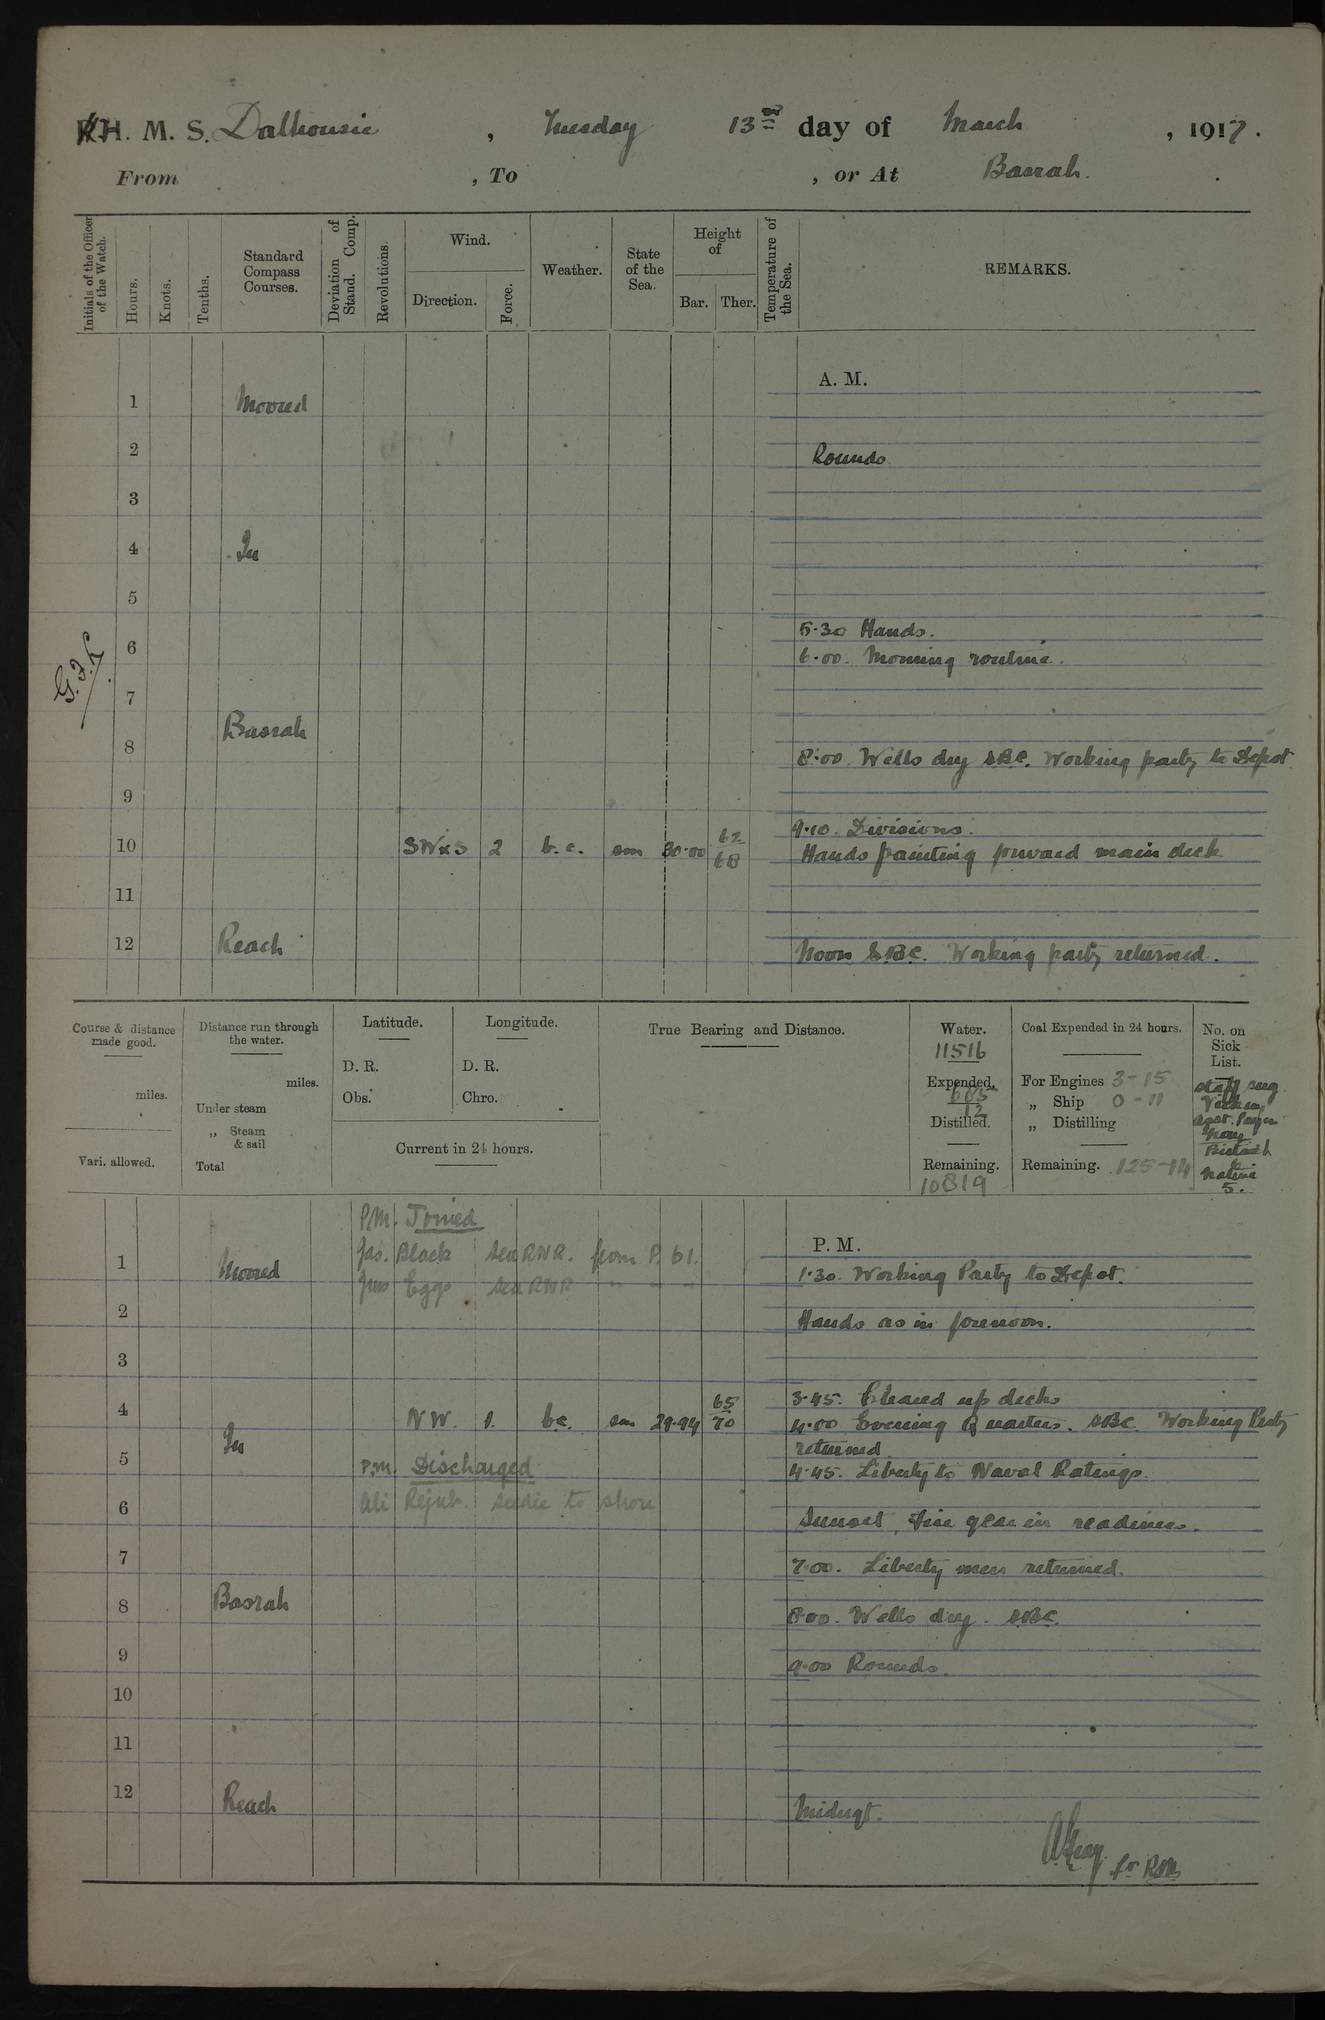 H. M. S. Dalhousie , Tuesday 13th day of March , 1917.
From , To , or At Basrah.
Initials of the Officer of the Watch.
Hours.
Knots.
Tenths.
Standard Compass Courses.
Deviation of Stand. Comp.
Revolutions.
Wind.
Direction.
Force.
Weather.
State of the Sea.
Height of
Bar. Ther.
Temperature of the Sea.
REMARKS.
A. M.
1 Moored
2 Rounds
3
4 In
5
5.30 Hands.
6
6.00. Morning routine.
7
Basrah
8
8.00. Wells dry SBC. Working party to Depot
9
9.10. Divisions.
10 SWxS 2 b.c. sm 30.00 62 68 Hands painting forward main deck
11
12 Reach
Noon SBC. Working party returned.
Course & distance made good.
miles.
Vari. allowed.
Distance run through the water.
miles.
Under steam
„ Steam & sail
Total
Latitude.
D. R.
Obs.
Longitude.
D. R.
Chro.
Current in 24 hours.
True Bearing and Distance.
Water.
11516
Expended.
685
12
Distilled.
Remaining.
10819
Coal Expended in 24 hours.
For Engines 3-15
„ Ship 0-11
„ Distilling
Remaining. 125-14
No. on Sick List.
Staff Surg
Native
5.
P.M. Joined
P. M.
Jas. Black Sea RNR. from P. 61.
1 Moored
Jno Eggo Sea RNR " " "
1.30. Working Party to Depot.
2
Hands as in forenoon.
3
3.45. Cleared up decks
4 NW. 1. bc. sm 29.94 65 70 4.00 Evening Quarters. SBC. Working Party
In
returned
5 P.M. Discharged
4.45. Liberty to Naval Ratings.
6 Ali Rejub. Seedie to shore
Sunset, Fire gear in readiness.
7
7.00. Liberty men returned.
8 Basrah
8.00. Wells dry. SBC.
9
9.00 Rounds.
10
11
12 Reach
Midngt.
for